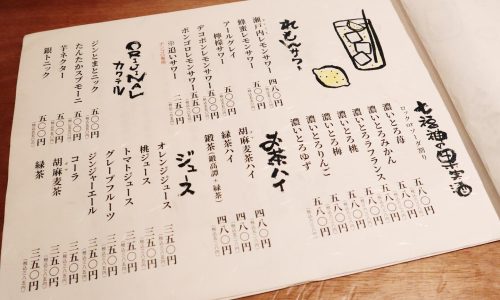 れもんサワー
瀬戸内レモンサワー 四八〇円
蜂蜜レモンサワー 五〇〇円
アールグレイ
檸檬サワー 五〇〇円
デコポンサワー 五〇〇円
ポンゴロレモンサワー 五〇〇円
※追いサワー 二五〇円
ORIGINAL
カクテル
ジンとまとニック 五〇〇円
たんたかスプモーニ 五〇〇円
芋ネクター 五〇〇円
銀トニック 五〇〇円
七福神の果実酒
ロック・ソーダ割り
濃いとろ苺 五八〇円
濃いとろみかん 五八〇円
濃いとろラフランス 五八〇円
濃いとろ桃 五八〇円
濃いとろ梅 五八〇円
濃いとろりんご 五八〇円
濃いとろゆず 五八〇円
お茶ハイ
緑茶ハイ 四八〇円
胡麻麦茶ハイ 四八〇円
鍛茶(鍛高譚+緑茶) 四八〇円
ジュース
オレンジジュース 三五〇円
桃ジュース 三五〇円
トマトジュース 三五〇円
グレープフルーツ 三五〇円
ジンジャーエール 三五〇円
コーラ 三五〇円
胡麻麦茶 三五〇円
緑茶 三五〇円